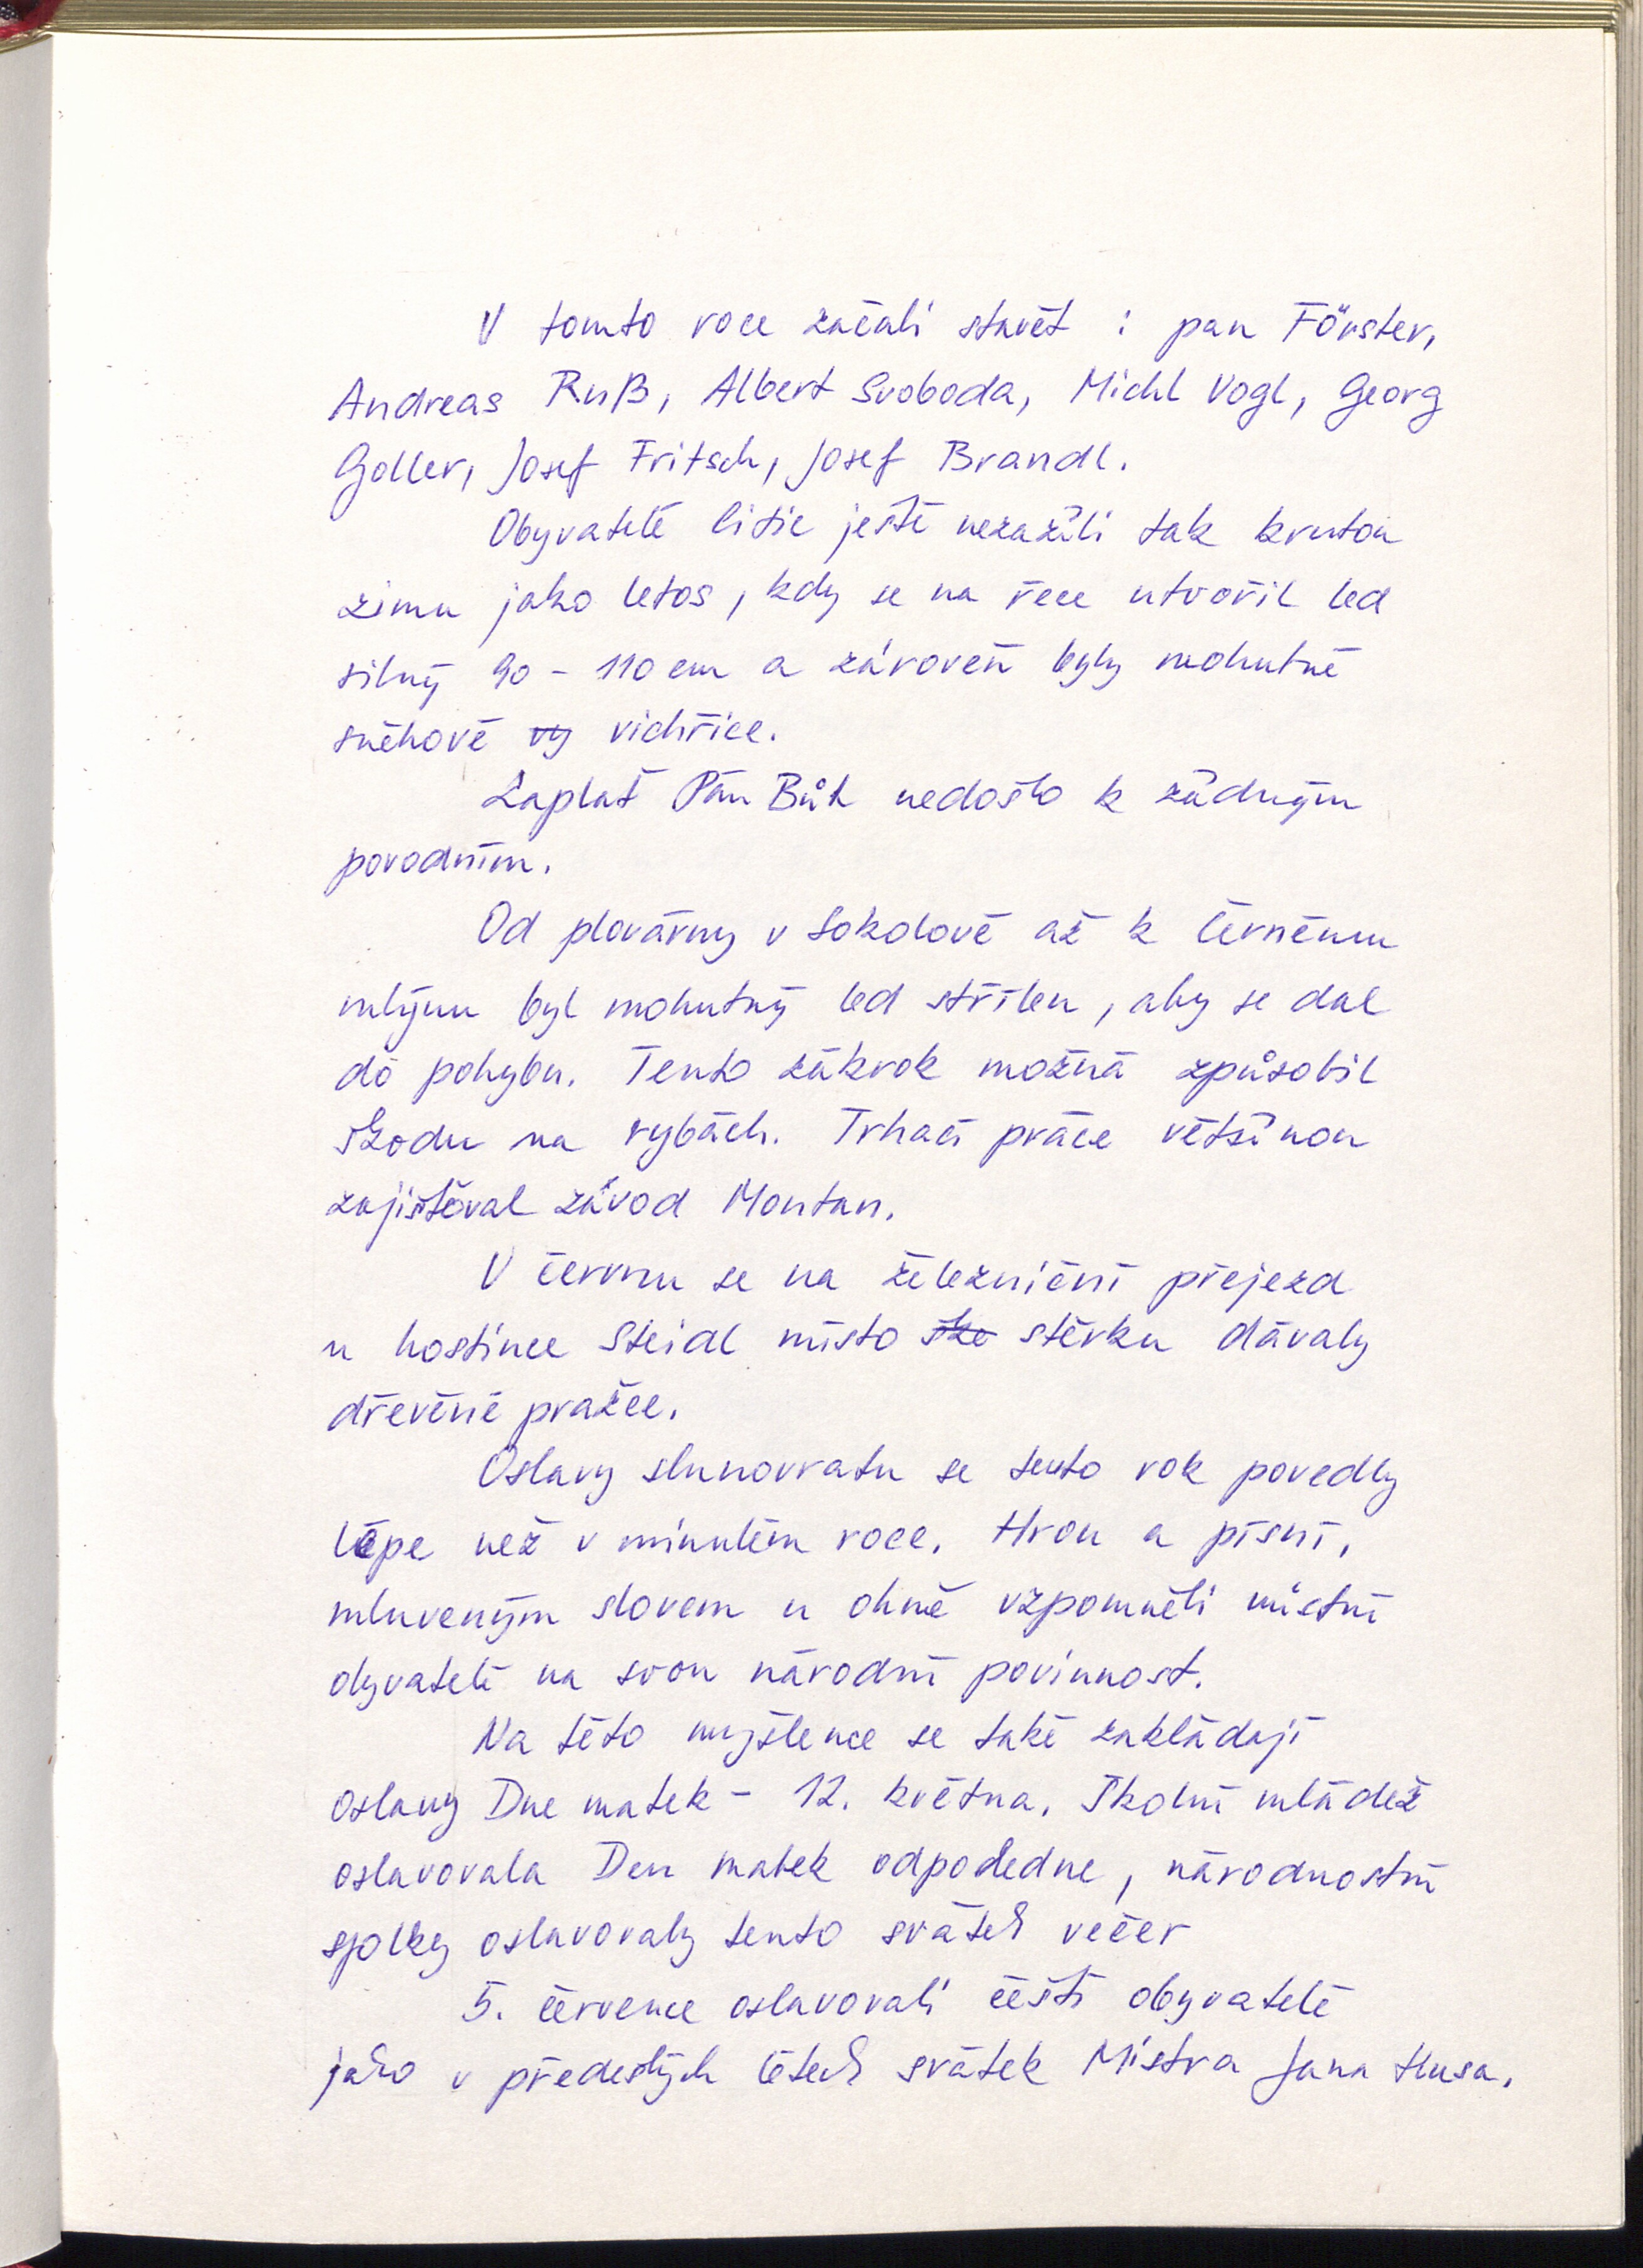 V tomto roce začali stavět : pan Förster,
Andreas Ruß, Albert Svoboda, Michl Vogl, Georg
Goller, Josef Fritsch, Josef Brandl.
Obyvatelé Citic ještě nezažili tak krutou
zimu jako letos, kdy se na řece utvořil led
silný 90 - 110 cm a zároveň byly mohutné
sněhové vy vichřice.
Zaplať Pán Bůh nedošlo k žádným
povodním.
Od plovárny v Sokolově až k Černému
mlýnu byl mohutný led střílen, aby se dal
do pohybu. Tento zákrok možná způsobil
škodu na rybách. Trhací práce většinou
zajišťoval závod Montan.
V červnu se na železniční přejezd
u hostince Steidl místo ške štěrku dávaly
dřevěné pražce.
Oslavy slunovratu se tento rok povedly
lépe než v minulém roce. Hrou a písní,
mluveným slovem u ohně vzpomněli místní
obyvatelé na svou národní povinnost.
Na této myšlence se také zakládají
oslavy Dne matek - 12. května. Školní mládež
oslavovala Den matek odpoledne, národnostní
spolky oslavovaly tento svátek večer
5. července oslavovali čeští obyvatelé
jako v předešlých létech svátek Mistra Jana Husa.